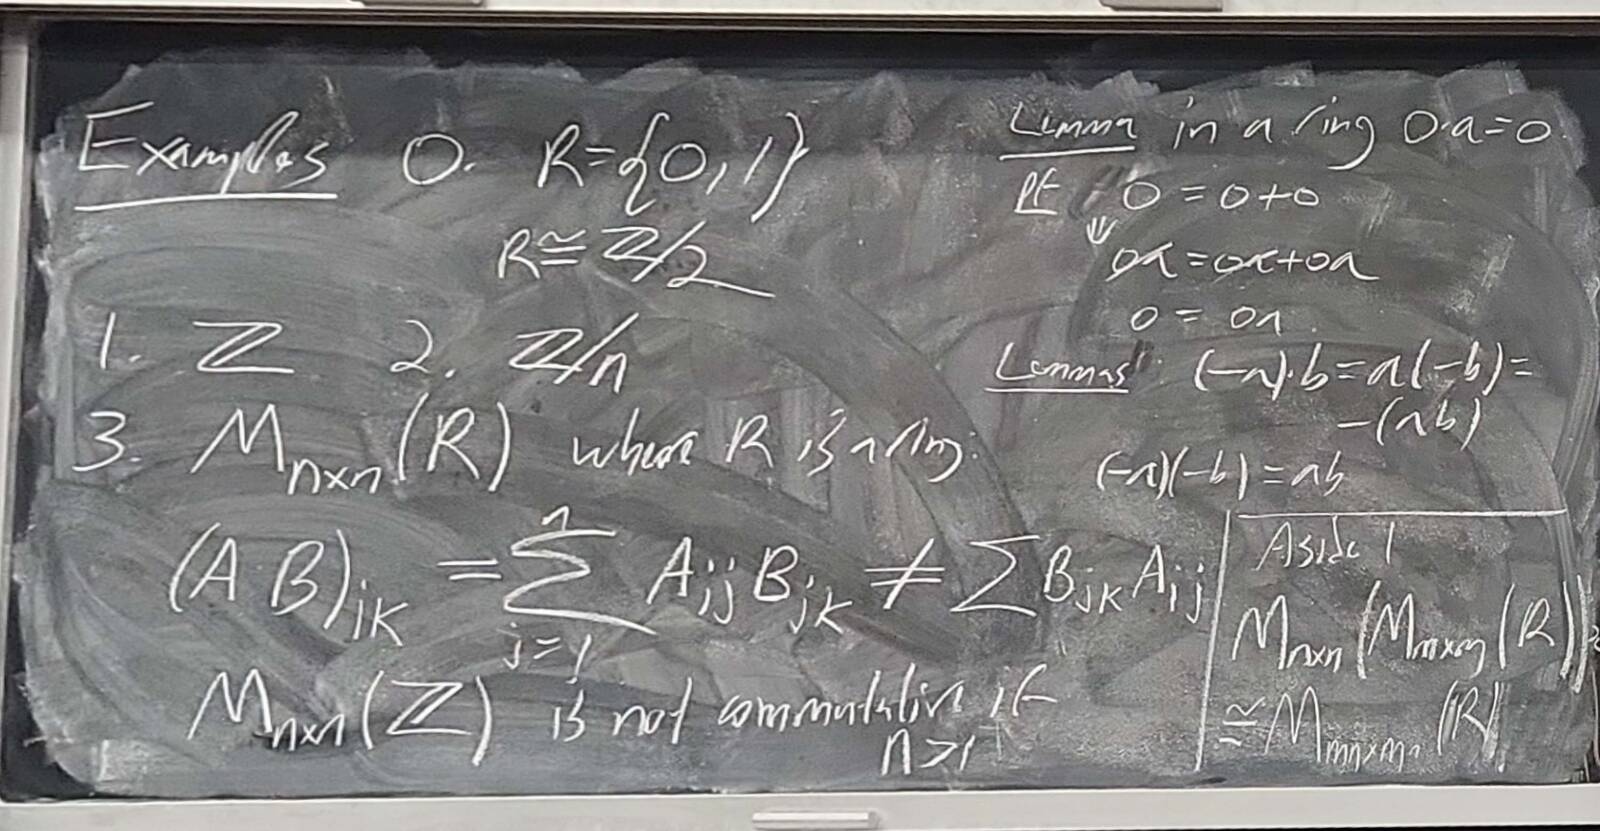 Examples 0. R={0,1}
R≅ℤ/2
1. ℤ 2. ℤ/n
3. M_{n×n}(R) where R is a ring.
(AB)_{ik} = ∑_{j=1}^{n} A_{ij}B_{jk} ≠ ∑B_{jk}A_{ij}
M_{n×n}(ℤ) is not commutative if
n>1
Lemma in a ring 0·a=0
Pf 0=0+0
⇓
0a=0a+0a
0=0a.
Lemmas (-a)·b=a(-b)=
-(ab)
(-a)(-b)=ab
Aside 1
M_{n×n}(M_{m×m}(R))
≅M_{mn×mn}(R)